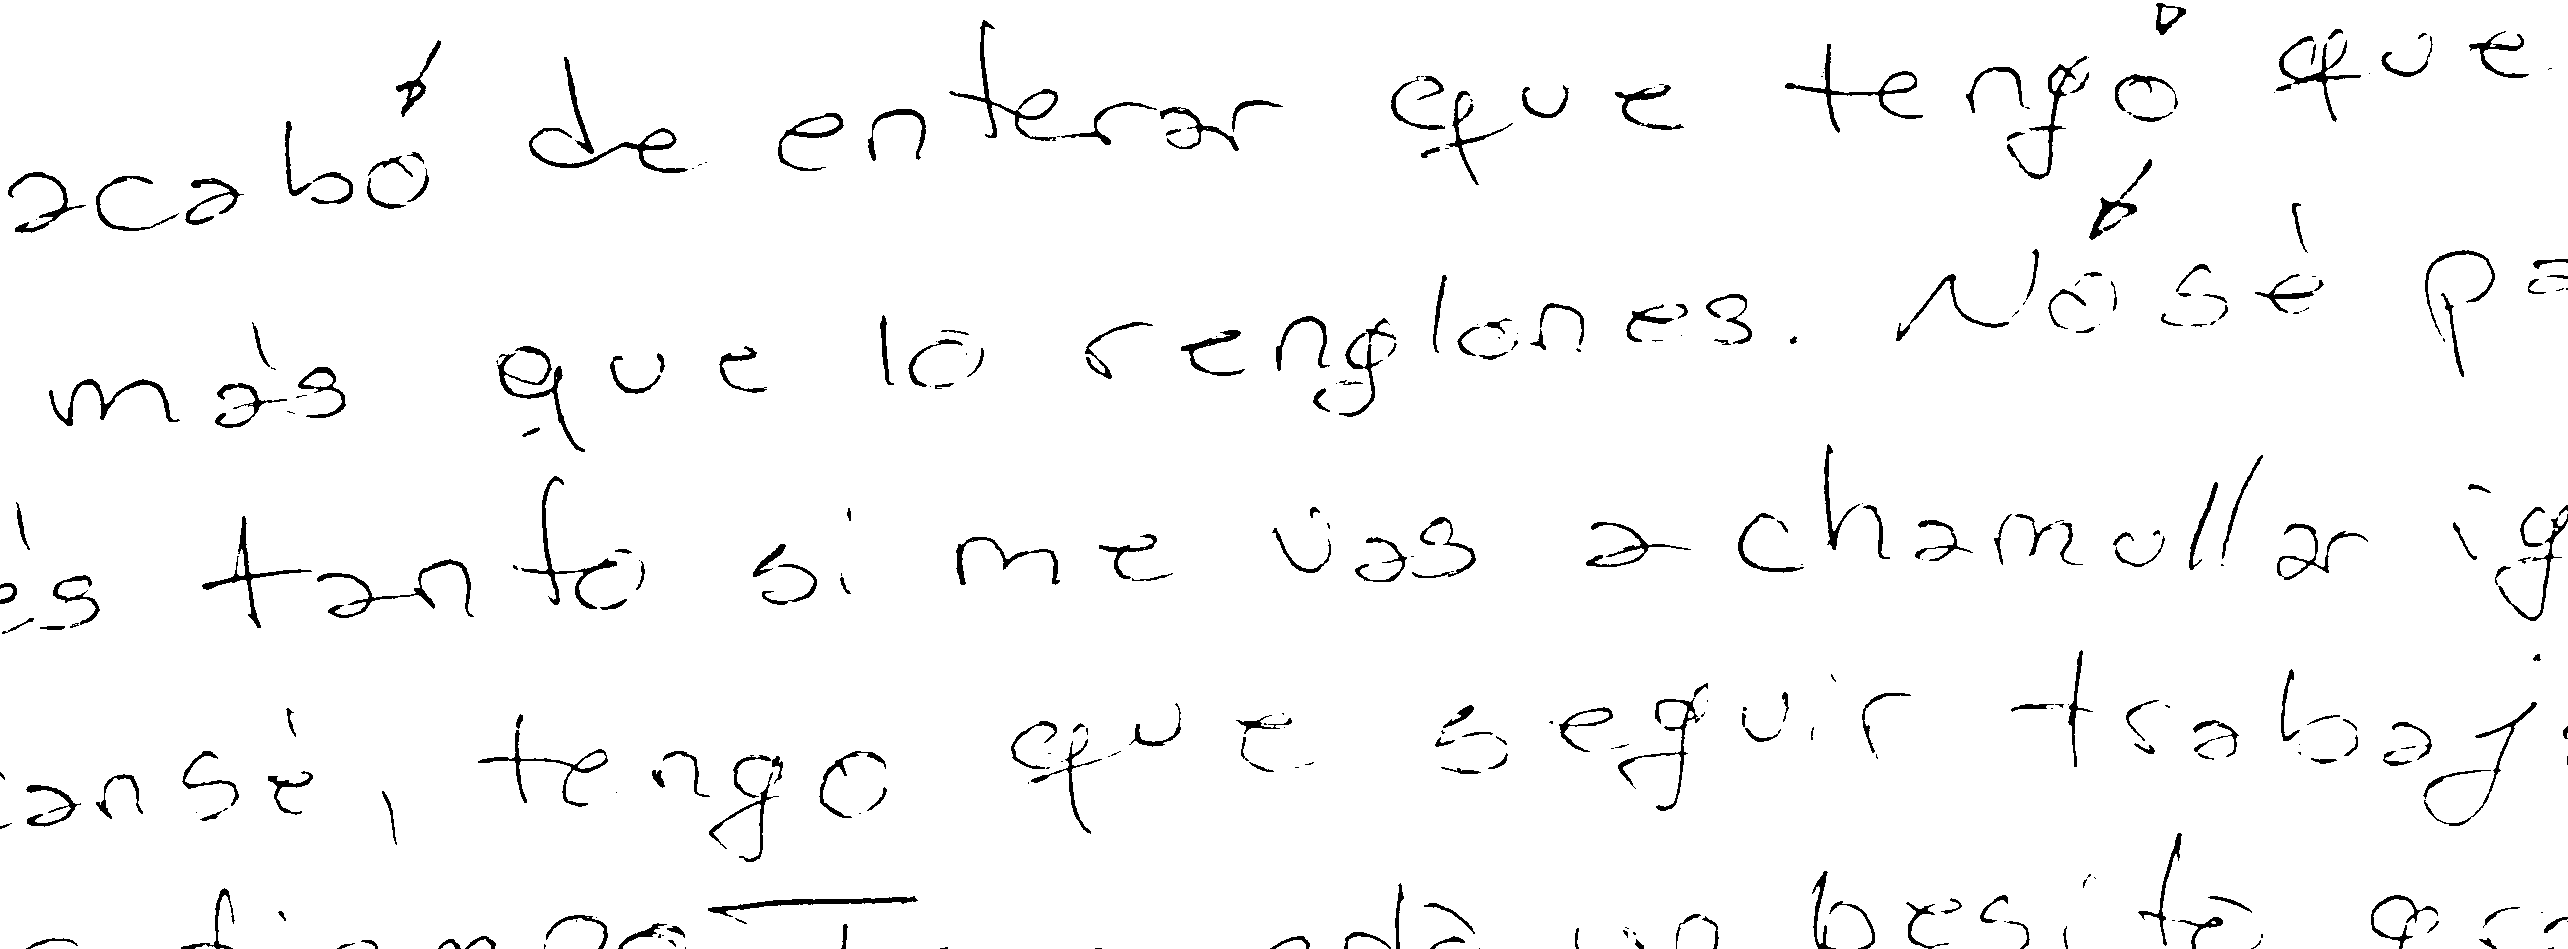 acabó de enterar que tengo que
más que 10 renglones. No sé
tanto si me vas a chamullar
cansé, tengo que seguir
un besito